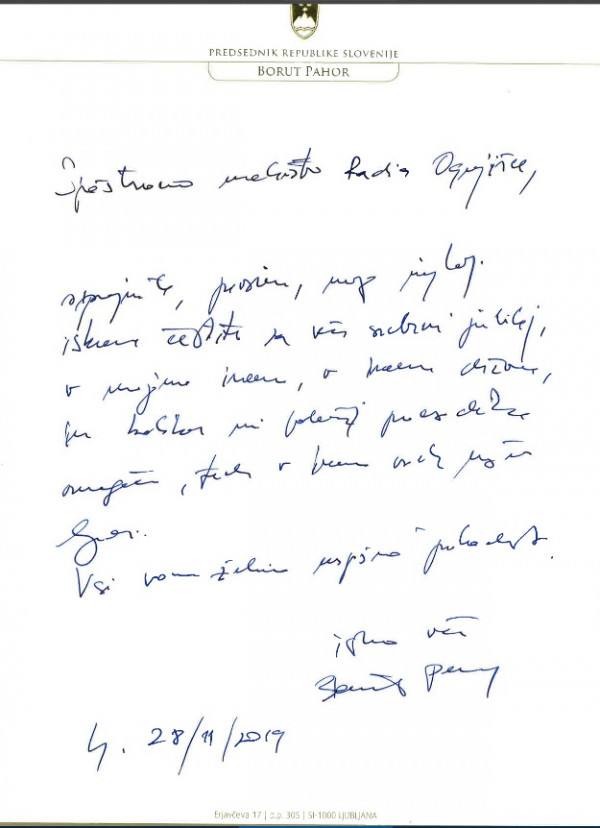 PREDSEDNIK REPUBLIKE SLOVENIJE
BORUT PAHOR
Spoštovano uredništvo Radia Ognjišče,
sprejmite, prosim, moje najbolj
iskrene čestitke za vaš srebrni jubilej,
v mojem imenu, v imenu države,
ki
tudi v imenu vseh
Vsi vam želimo uspešno prihodnost.
iskreno vaš
Borut Pahor
28/11/2019
Erjavčeva 17 | p.p. 305 | SI-1000 LJUBLJANA